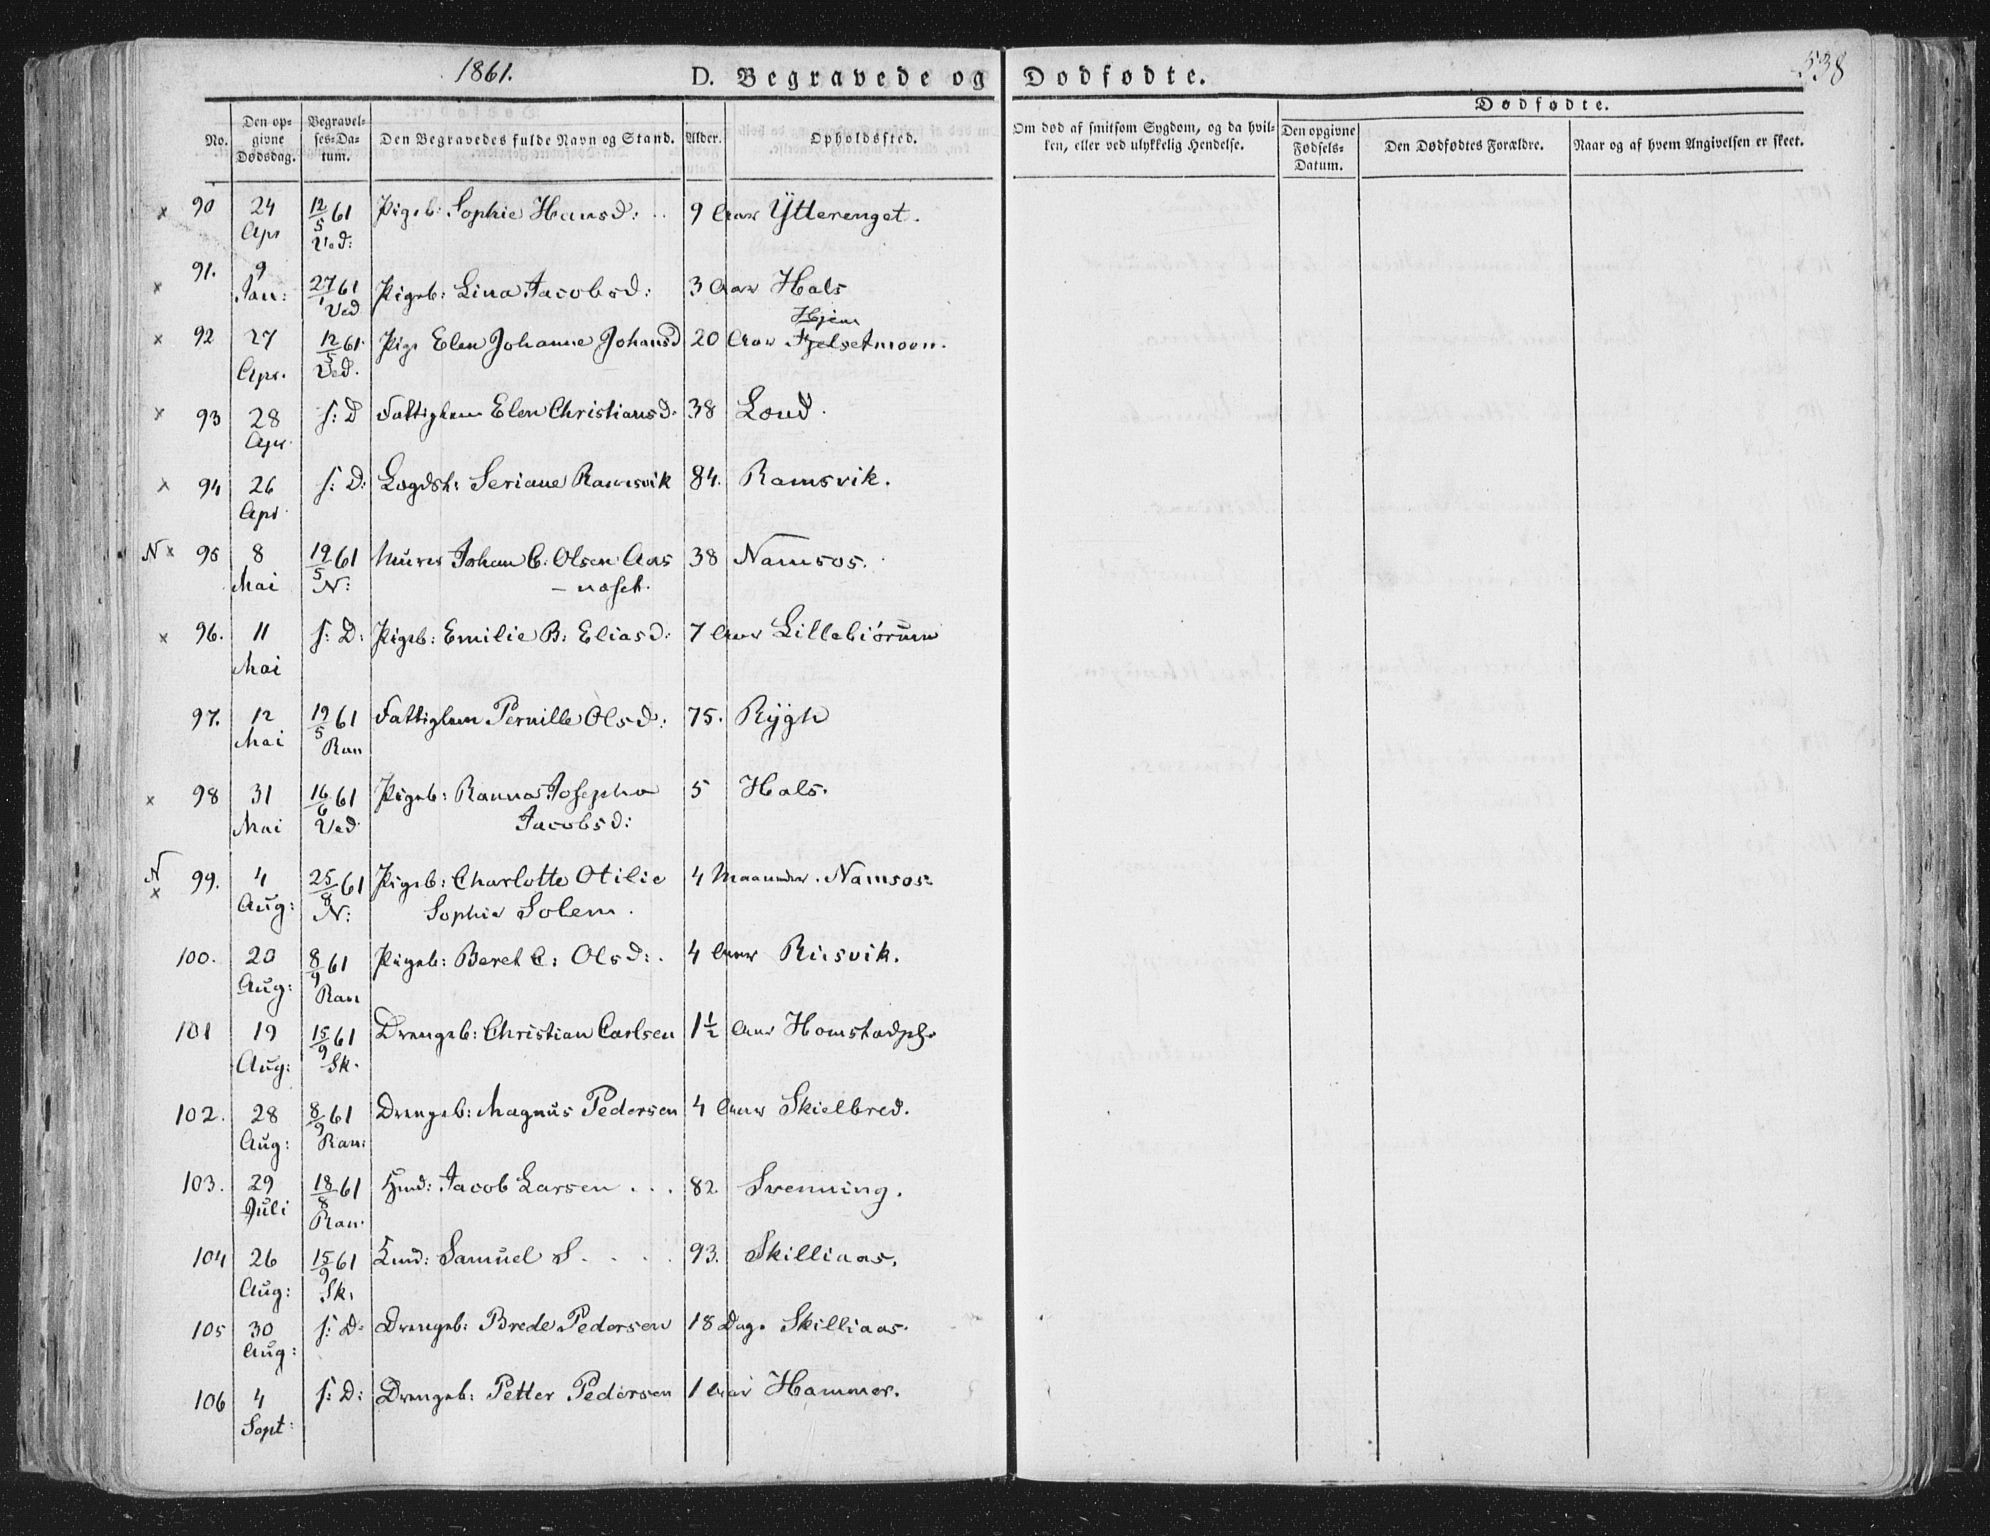 1861.
D. Begravede og Dødfødte.
538
No.
Den opgivne Dødsdag.
Begravelses-Datum.
Den Begravedes fulde Navn og Stand.
Alder.
Opholdssted.
Om død af smitsom Sygdom, og da hvilken, eller ved ulykkelig Hendelse.
Dødfødte.
Den opgivne Fødsels-Datum.
Den Dødfødtes Forældre.
Naar og af hvem Angivelsen er skeet.
x 90 24 12/5 61 Pigeb: Sophie Hansd: 9 Aar Ytterenget.
Apr Ved:
x 91. 9 27/1 61 Pigeb: Lina Jacobsd: 3 Aar Hals
Jan: Ved
Hjem
x 92 27 12/5 61 Pige Elen Johanne Johansd 20 Aar
Apr. Ved.
x 93 28 s: D Fattiglem Elen Christiansd. 38 Loud.
Apr.
x 94 26 s: D: Lægdsl: Seriane Ramsvik 84. Ramsvik.
Apr
N x 95 8 19/5 61 Murer Johan C. Olsen Aas 38 Namsos.
Mai N: – naset.
x 96. 11 s: D: Pigeb: Emilie B: Eliasd. 7 Aar Lillebiörum
Mai
97. 12 19/5 61 Fattiglem Pernille Olsd: 75. Rygh
Mai Ran
x 98 31 16/6 61 Pigeb: Ranna Josepha 5 Hals.
Mai Ved Jacobsd:
N x 99. 4 25/8 61 Pigeb: Charlotte Otilie 4 Maaneder. Namsos:
Aug: N: Sophie Solem.
100. 20 8/9 61 Pigeb: Beret C: Olsd: 4 Aar Riisvik.
Aug: Ran
101 19 15/9 61 Drengeb: Christian Carlsen 1½ Aar Homstadpl.
Aug: Sk.
102. 28 8/9 61 Drengeb: Magnus Pedersen 4 Aar Skielbred.
Aug: Ran:
103. 29 18/8 61 Jacob Larsen . . . 82 Svenning.
Juli Ran.
104 26 15/9 61 Samuel S. . . . 93. Skilliaas.
Aug: Sk.
105 30 s: D. Drengeb: Brede Pedersen 18 Dag. Skilliaas.
Aug:
106 4 s: D: Drengeb: Petter Pedersen 1 Aar Hammer.
Sept: